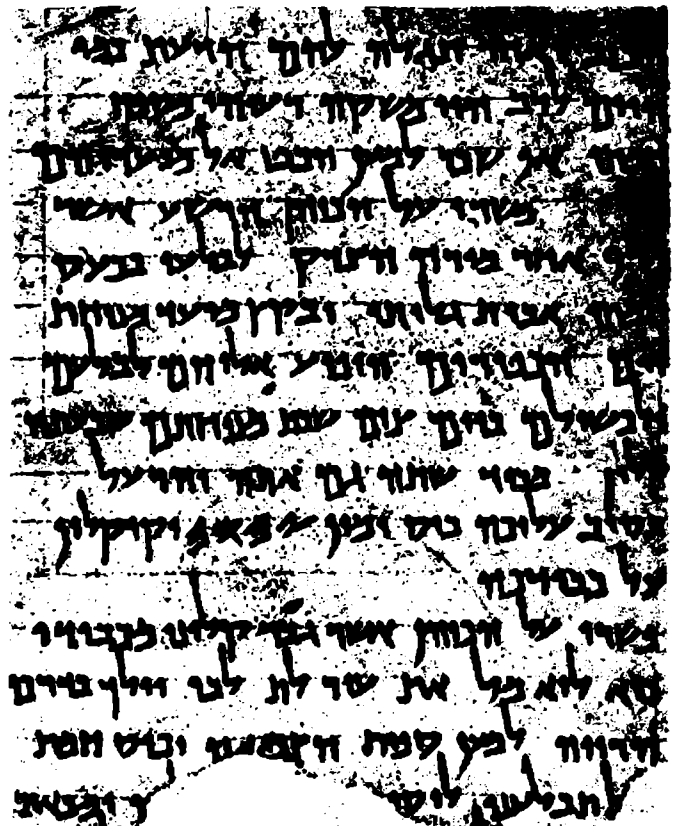 ואחר תגלה להם הדעת כמי
היים לרב הוי משקה רעיהו מספח
חמתו אף שכר למען הבט אל מועדיהם
פשרו על הכוהן הרשע אשר
רדף אחר מורה הצדק לבלעו בכעס
חמתו אבית גלותו ובקץ מועד מנוחת
יום הכפורים הופיע אליהם לבלעם
ולכשילם ביום צום שבת מנוחתם שבעתה
קלון מכבוד שתה גם אתה והרעל
תסוב עליכה כוס ימין 𐤉𐤄𐤅𐤄 וקיקלון
על כבודכה
פשרו על הכוהן אשר גבר קלונו מכבודו
כיא לוא מל את עורלת לבו וילך בדרכי
הרויה למען ספות הצמאה וכוס חמת
תבלענו